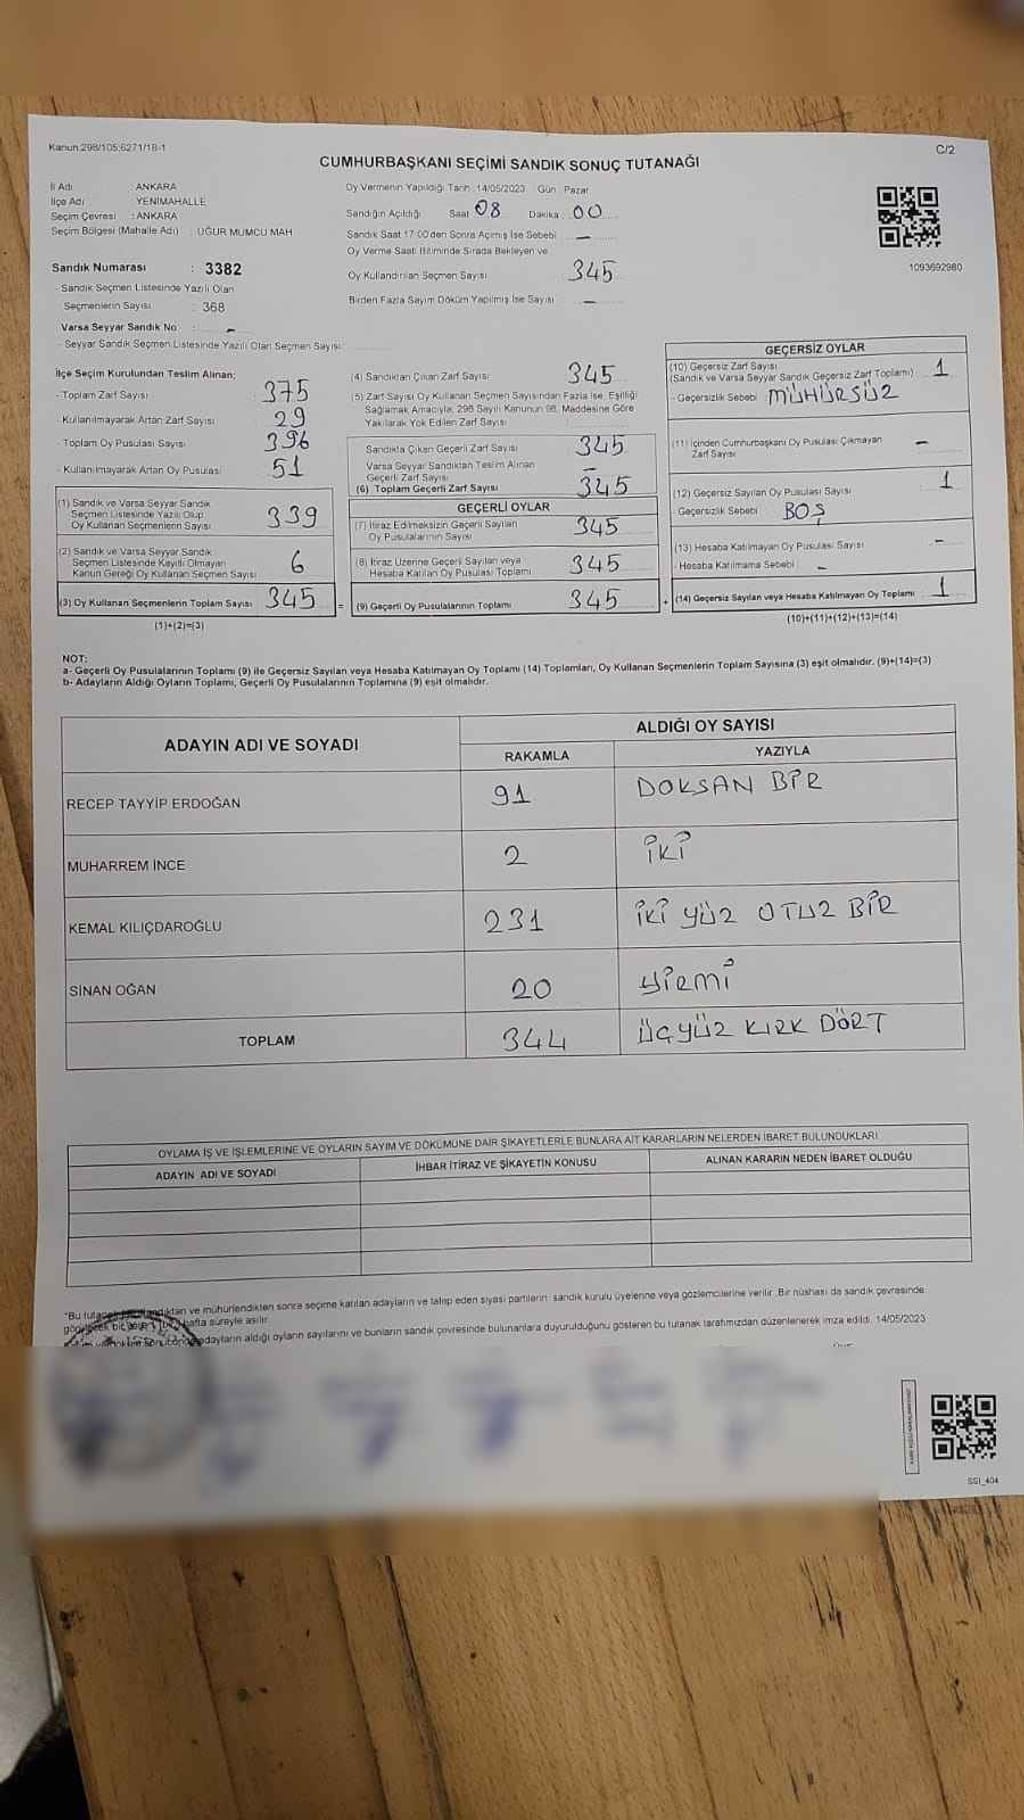 Kanun:298/105;6271/18-1
C/2
CUMHURBAŞKANI SEÇİMİ SANDIK SONUÇ TUTANAĞI
İl Adı : ANKARA
İlçe Adı : YENİMAHALLE
Seçim Çevresi : ANKARA
Seçim Bölgesi (Mahalle Adı) : UĞUR MUMCU MAH
Sandık Numarası : 3382
- Sandık Seçmen Listesinde Yazılı Olan
Seçmenlerin Sayısı : 368
Varsa Seyyar Sandık No : -
- Seyyar Sandık Seçmen Listesinde Yazılı Olan Seçmen Sayısı:
Oy Vermenin Yapıldığı Tarih : 14/05/2023 Gün : Pazar
Sandığın Açıldığı Saat 08 Dakika : 00
Sandık Saat 17:00'den Sonra Açılmış İse Sebebi -
Oy Verme Saati Bitiminde Sırada Bekleyen ve
Oy Kullandırılan Seçmen Sayısı 345
Birden Fazla Sayım Döküm Yapılmış İse Sayısı -
1093692980
İlçe Seçim Kurulundan Teslim Alınan;
- Toplam Zarf Sayısı 375
- Kullanılmayarak Artan Zarf Sayısı 29
- Toplam Oy Pusulası Sayısı 396
- Kullanılmayarak Artan Oy Pusulası 51
(1) Sandık ve Varsa Seyyar Sandık
Seçmen Listesinde Yazılı Olup
Oy Kullanan Seçmenlerin Sayısı 339
(2) Sandık ve Varsa Seyyar Sandık
Seçmen Listesinde Kayıtlı Olmayan
Kanun Gereği Oy Kullanan Seçmen Sayısı 6
(3) Oy Kullanan Seçmenlerin Toplam Sayısı 345 =
(1)+(2)=(3)
(4) Sandıktan Çıkan Zarf Sayısı 345
(5) Zarf Sayısı Oy Kullanan Seçmen Sayısından Fazla İse, Eşitliği
Sağlamak Amacıyla, 298 Sayılı Kanunun 98. Maddesine Göre
Yakılarak Yok Edilen Zarf Sayısı
Sandıkta Çıkan Geçerli Zarf Sayısı 345
Varsa Seyyar Sandıktan Teslim Alınan
Geçerli Zarf Sayısı -
(6) Toplam Geçerli Zarf Sayısı 345
GEÇERLİ OYLAR
(7) İtiraz Edilmeksizin Geçerli Sayılan
Oy Pusulalarının Sayısı 345
(8) İtiraz Üzerine Geçerli Sayılan veya
Hesaba Katılan Oy Pusulası Toplamı 345
(9) Geçerli Oy Pusulalarının Toplamı 345 +
GEÇERSİZ OYLAR
(10) Geçersiz Zarf Sayısı
(Sandık ve Varsa Seyyar Sandık Geçersiz Zarf Toplamı) 1
- Geçersizlik Sebebi MÜHÜRSÜZ
(11) İçinden Cumhurbaşkanı Oy Pusulası Çıkmayan
Zarf Sayısı -
(12) Geçersiz Sayılan Oy Pusulası Sayısı 1
- Geçersizlik Sebebi BOŞ
(13) Hesaba Katılmayan Oy Pusulası Sayısı -
- Hesaba Katılmama Sebebi -
(14) Geçersiz Sayılan veya Hesaba Katılmayan Oy Toplamı 1
(10)+(11)+(12)+(13)=(14)
NOT:
a- Geçerli Oy Pusulalarının Toplamı (9) ile Geçersiz Sayılan veya Hesaba Katılmayan Oy Toplamı (14) Toplamları, Oy Kullanan Seçmenlerin Toplam Sayısına (3) eşit olmalıdır. (9)+(14)=(3)
b- Adayların Aldığı Oyların Toplamı, Geçerli Oy Pusulalarının Toplamına (9) eşit olmalıdır.
ADAYIN ADI VE SOYADI
ALDIĞI OY SAYISI
RAKAMLA YAZIYLA
RECEP TAYYİP ERDOĞAN 91 DOKSAN BİR
MUHARREM İNCE 2 İKİ
KEMAL KILIÇDAROĞLU 231 İKİ YÜZ OTUZ BİR
SİNAN OĞAN 20 YİRMİ
TOPLAM 344 ÜÇ YÜZ KIRK DÖRT
OYLAMA İŞ VE İŞLEMLERİNE VE OYLARIN SAYIM VE DÖKÜMÜNE DAİR ŞİKAYETLERLE BUNLARA AİT KARARLARIN NELERDEN İBARET BULUNDUKLARI
ADAYIN ADI VE SOYADI İHBAR İTİRAZ VE ŞİKAYETİN KONUSU ALINAN KARARIN NEDEN İBARET OLDUĞU
*Bu tutanak ve mühürlendikten sonra seçime katılan adayların ve talep eden siyasi partilerin sandık kurulu üyelerine veya gözlemcilerine verilir. Bir nüshası da sandık çevresinde
hafta süreyle asılır.
adayların aldığı oyların sayılarını ve bunların sandık çevresinde bulunanlara duyurulduğunu gösteren bu tutanak tarafımızdan düzenlenerek imza edildi. 14/05/2023
SSI_404